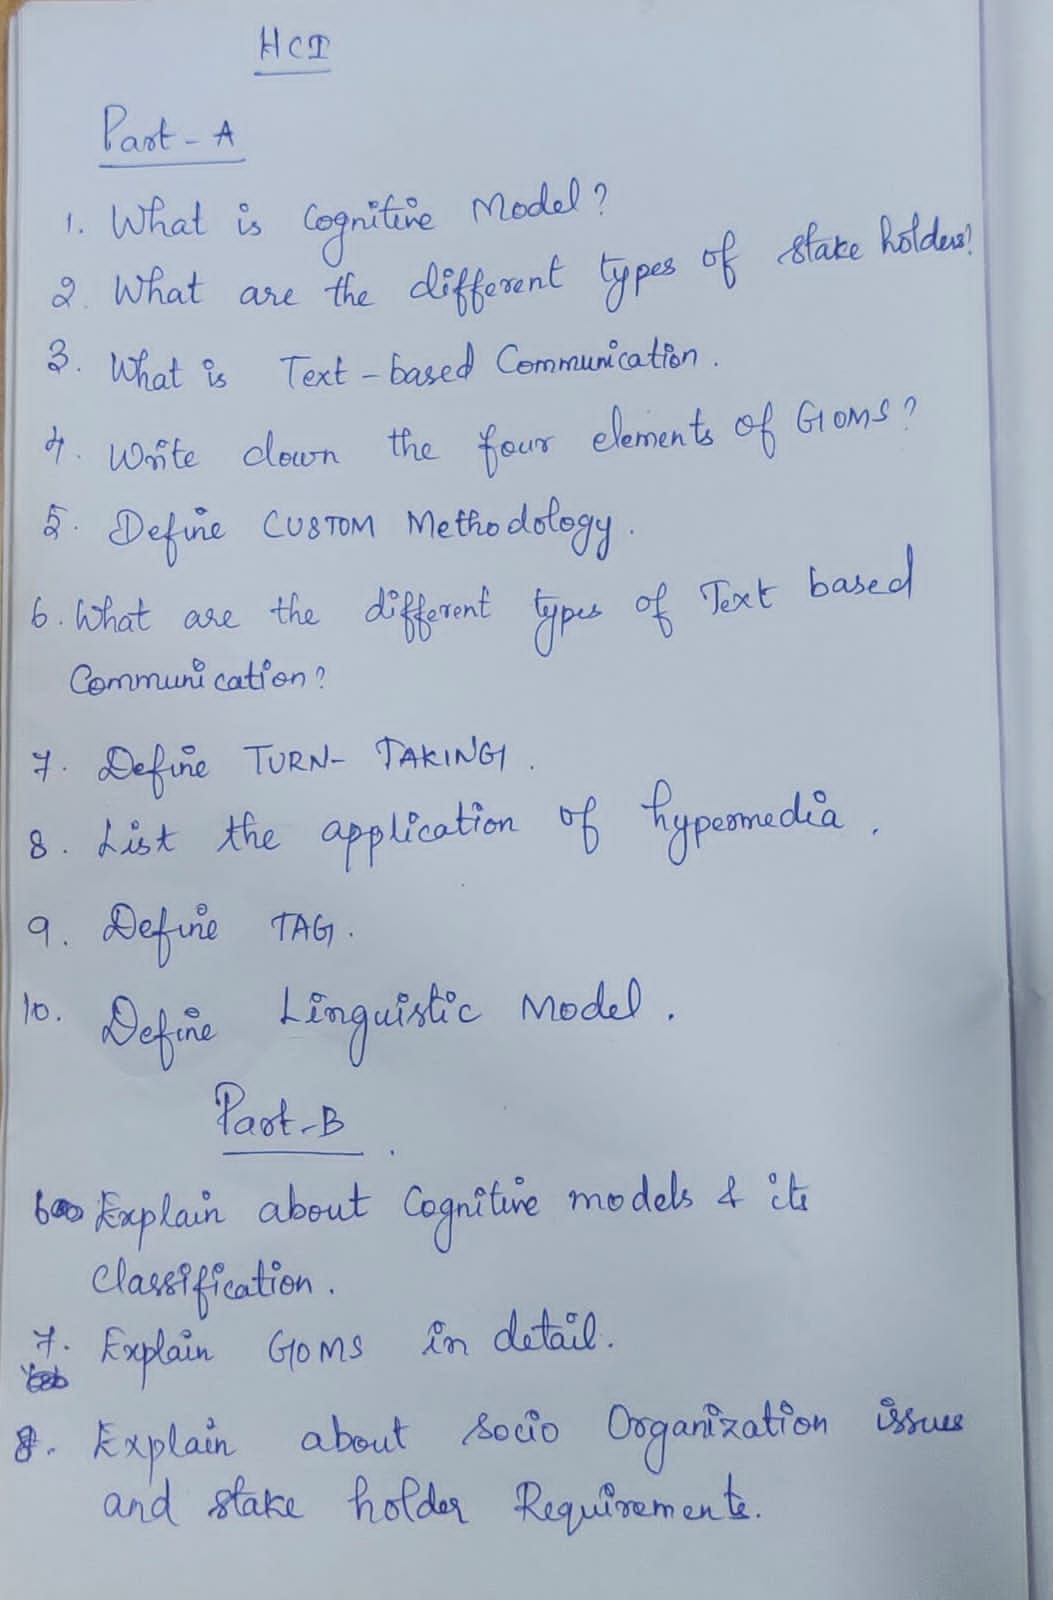 HCI
Part - A
1. What is Cognitive Model?
2. What are the different types of stake holders?
3. What is Text-based Communication.
4. Write down the four elements of GOMS?
5. Define CUSTOM Methodology.
6. What are the different types of Text based
Communication?
7. Define TURN-TAKING.
8. List the application of hypermedia.
9. Define TAG.
10. Define Linguistic Model.
Part-B
6 Explain about Cognitive models & its
classification.
7. Explain GOMS in detail.
8. Explain about socio Organization issues
and stake holder Requirements.